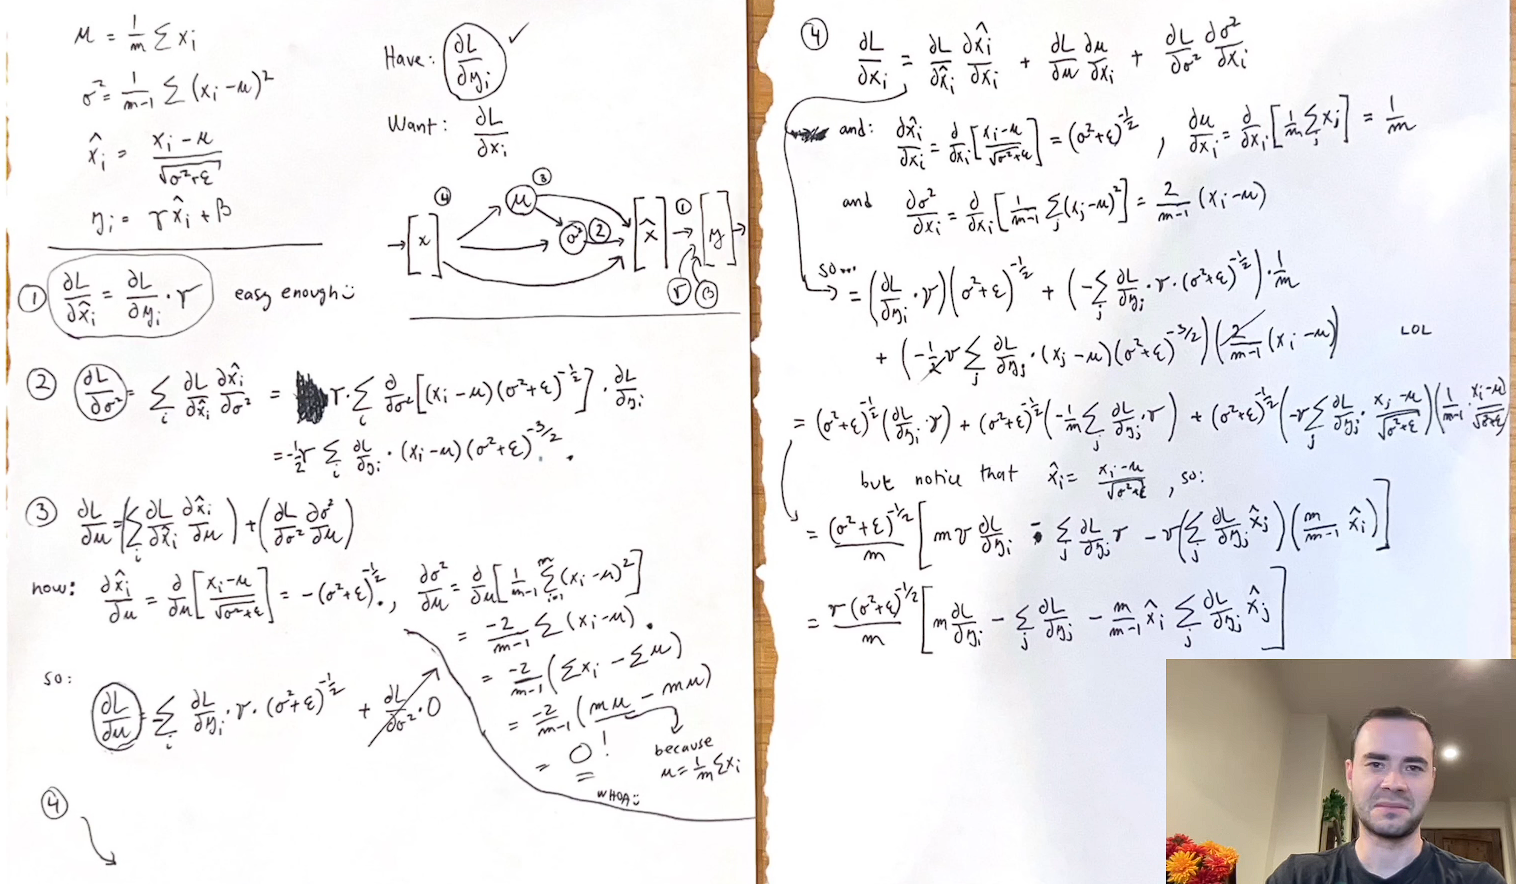 μ = 1/m Σ xᵢ
σ² = 1/(m-1) Σ (xᵢ-μ)²
x̂ᵢ = (xᵢ - μ)/√(σ²+ε)
yᵢ = γx̂ᵢ + β
Have: ∂L/∂yᵢ ✓
Want: ∂L/∂xᵢ
④ ③
x μ σ² ② x̂ ① y
γ β
① ∂L/∂x̂ᵢ = ∂L/∂yᵢ · γ easy enough :)
② ∂L/∂σ² = Σᵢ ∂L/∂x̂ᵢ ∂x̂ᵢ/∂σ² = γ·Σᵢ ∂/∂σ² [(xᵢ-μ)(σ²+ε)^(-1/2)] · ∂L/∂yᵢ
= -1/2 γ Σᵢ ∂L/∂yᵢ · (xᵢ-μ)(σ²+ε)^(-3/2) .
③ ∂L/∂μ = (Σᵢ ∂L/∂x̂ᵢ ∂x̂ᵢ/∂μ) + (∂L/∂σ² ∂σ²/∂μ)
now: ∂x̂ᵢ/∂μ = ∂/∂μ [(xᵢ-μ)/√(σ²+ε)] = -(σ²+ε)^(-1/2) . , ∂σ²/∂μ = ∂/∂μ [1/(m-1) Σᵢ₌₁ᵐ (xᵢ-μ)²]
= -2/(m-1) Σ (xᵢ-μ) .
= -2/(m-1) (Σxᵢ - Σμ)
= -2/(m-1) (mμ - mμ)
= 0 !
because
μ = 1/m Σxᵢ
WHOA :)
so:
∂L/∂μ = -Σᵢ ∂L/∂yᵢ · γ · (σ²+ε)^(-1/2) + ∂L/∂σ² · 0
④
④ ∂L/∂xᵢ = ∂L/∂x̂ᵢ ∂x̂ᵢ/∂xᵢ + ∂L/∂μ ∂μ/∂xᵢ + ∂L/∂σ² ∂σ²/∂xᵢ
and: ∂x̂ᵢ/∂xᵢ = ∂/∂xᵢ [(xᵢ-μ)/√(σ²+ε)] = (σ²+ε)^(-1/2) , ∂μ/∂xᵢ = ∂/∂xᵢ [1/m Σⱼ xⱼ] = 1/m
and ∂σ²/∂xᵢ = ∂/∂xᵢ [1/(m-1) Σⱼ (xⱼ-μ)²] = 2/(m-1) (xᵢ-μ)
so...
= (∂L/∂yᵢ · γ)(σ²+ε)^(-1/2) + (-Σⱼ ∂L/∂yⱼ · γ · (σ²+ε)^(-1/2)) · 1/m
+ (-1/2 γ Σⱼ ∂L/∂yⱼ · (xⱼ-μ)(σ²+ε)^(-3/2)) (2/(m-1) (xᵢ-μ)) LOL
= (σ²+ε)^(-1/2) (∂L/∂yᵢ · γ) + (σ²+ε)^(-1/2) (-1/m Σⱼ ∂L/∂yⱼ · γ) + (σ²+ε)^(-1/2) (-γ Σⱼ ∂L/∂yⱼ · (xⱼ-μ)/√(σ²+ε)) (1/(m-1) · (xᵢ-μ)/√(σ²+ε))
but notice that x̂ᵢ = (xᵢ-μ)/√(σ²+ε) , so:
= (σ²+ε)^(-1/2)/m [mγ ∂L/∂yᵢ - Σⱼ ∂L/∂yⱼ γ - γ(Σⱼ ∂L/∂yⱼ x̂ⱼ)(m/(m-1) x̂ᵢ)]
= γ(σ²+ε)^(-1/2)/m [m ∂L/∂yᵢ - Σⱼ ∂L/∂yⱼ - m/(m-1) x̂ᵢ Σⱼ ∂L/∂yⱼ x̂ⱼ]